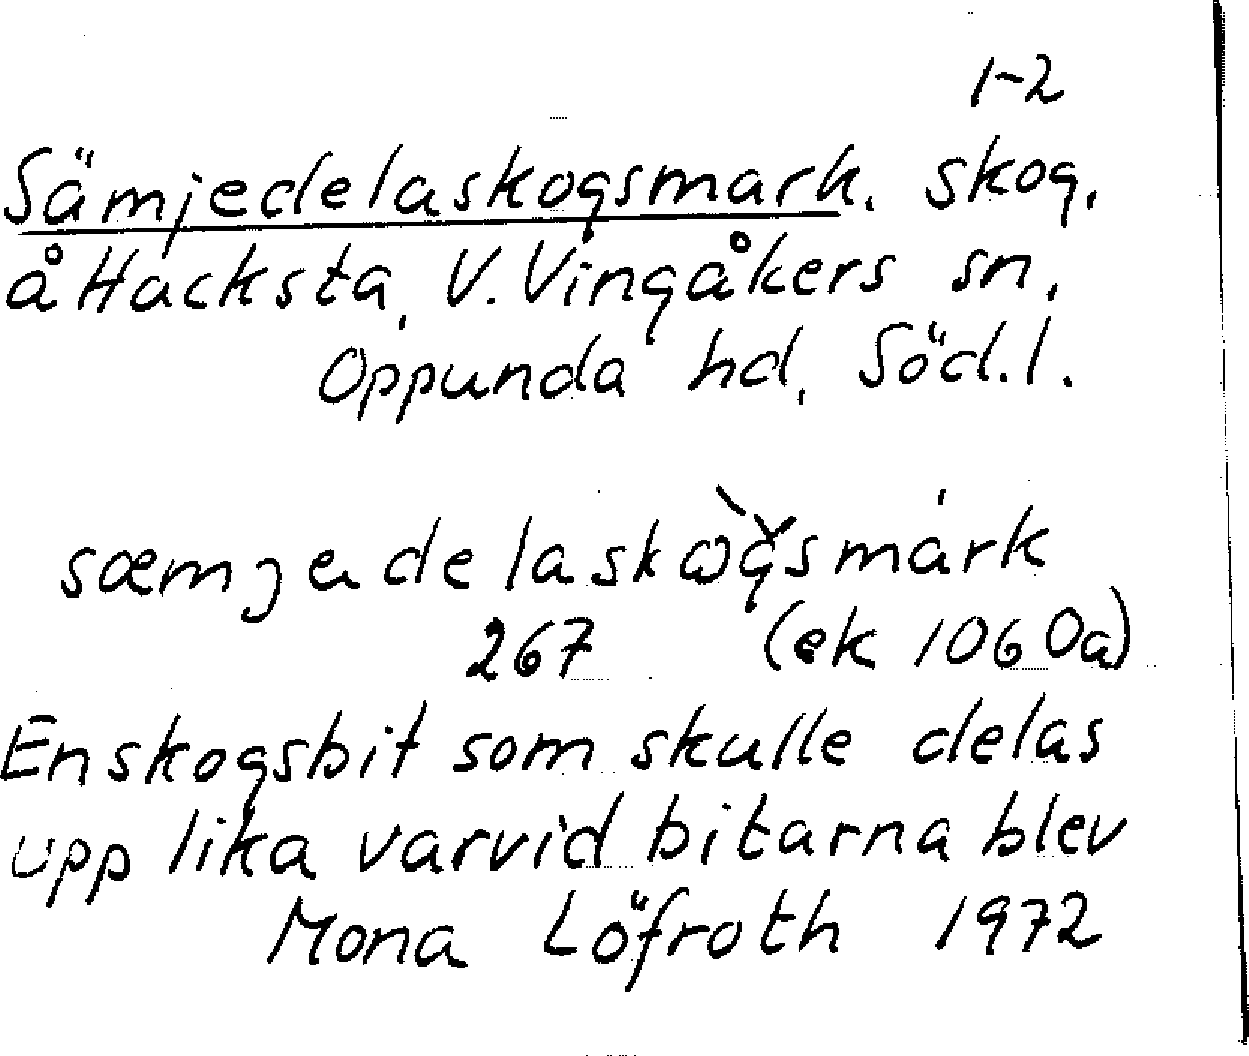 1-2
Sämjedelaskogsmark. skog.
å Hacksta, V. Vingåkers sn,
Oppunda hd, Söd.l.
267 (ek 1060a)
En skogsbit som skulle delas
upp lika varvid bitarna blev
Mona Löfroth 1972